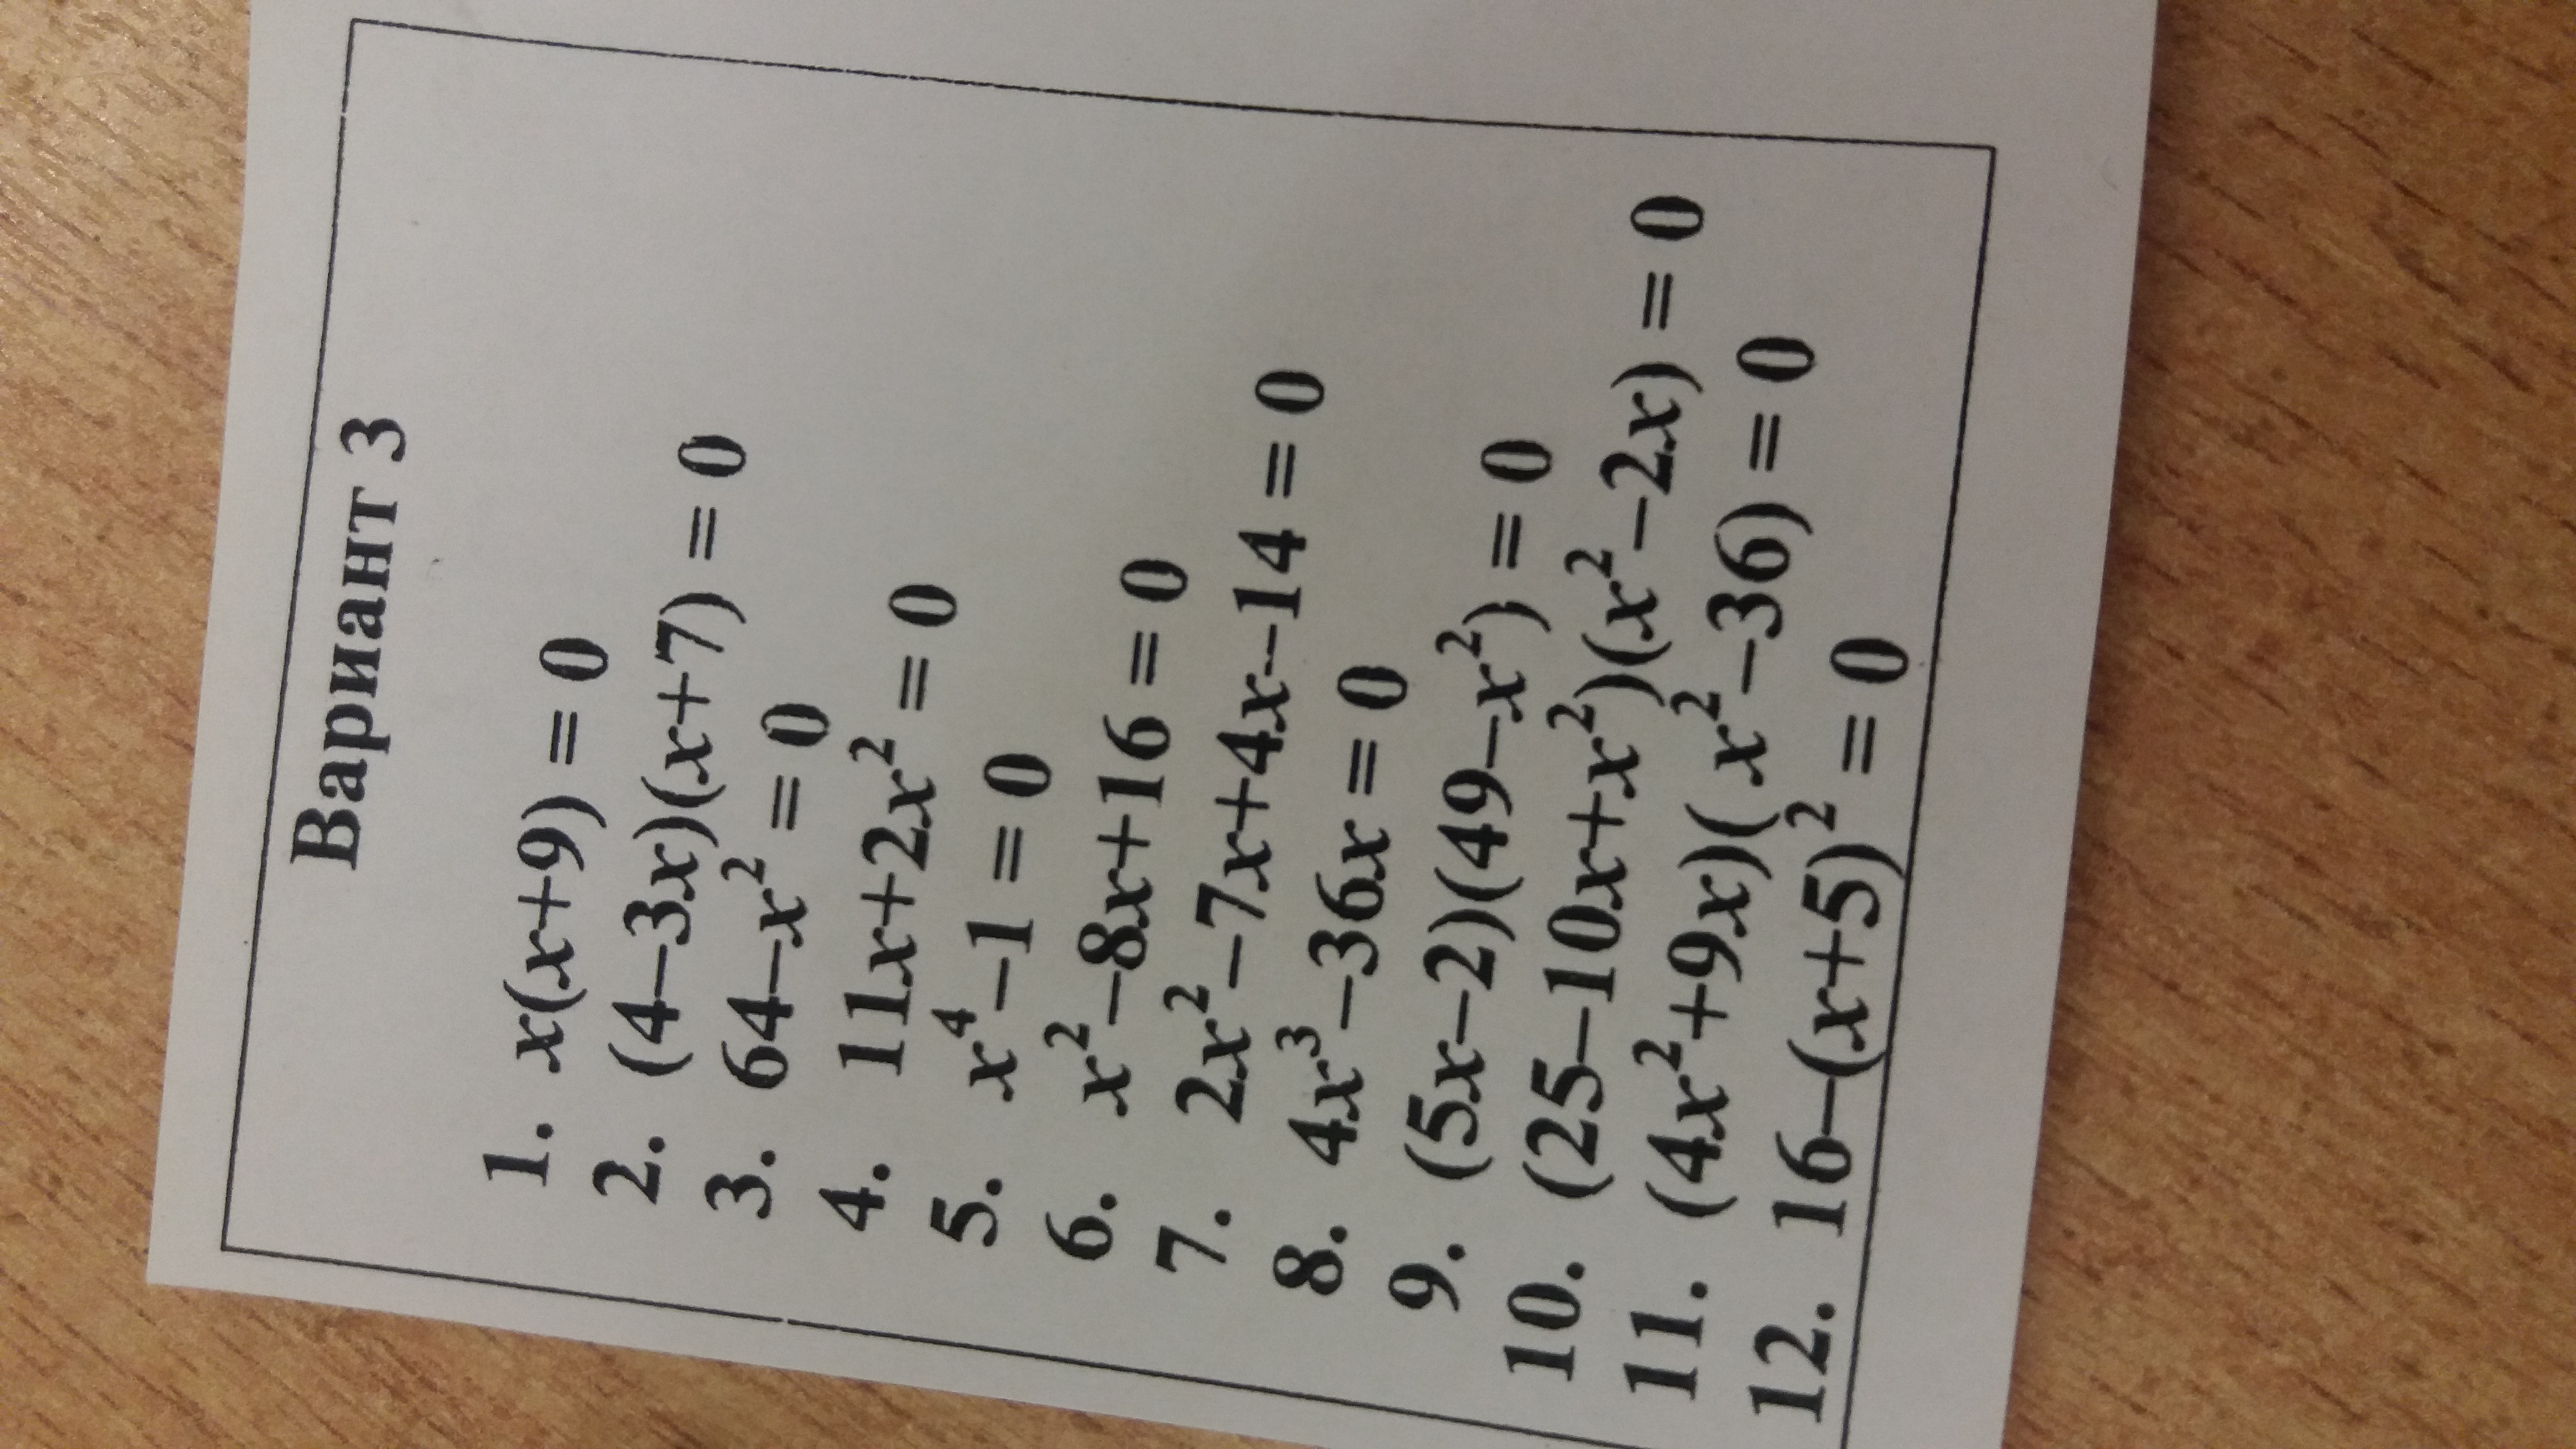 Вариант 3
1. x(x+9) = 0
2. (4–3x)(x+7) = 0
3. 64–x² = 0
4. 11x+2x² = 0
5. x⁴–1 = 0
6. x²–8x+16 = 0
7. 2x²–7x+4x–14 = 0
8. 4x³–36x = 0
9. (5x–2)(49–x²) = 0
10. (25–10x+x²)(x²–2x) = 0
11. (4x²+9x)(x²–36) = 0
12. 16–(x+5)² = 0